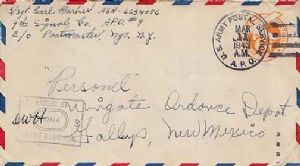 S/Sgt. Earl Warner ASN-6654086
9th Signal Co. A.P.O. #9
c/o Postmaster, N.Y., N.Y.
U.S. ARMY POSTAL SERVICE
MAR
1943
A.M.
A.P.O.
"Personel"
Wingate Ordance Depot
Gallup,
New Mexico
PASSED BY